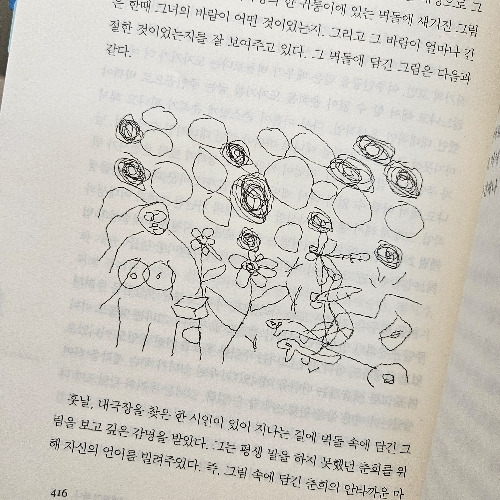 귀퉁이에 있는 벽돌에 새기진 그림
은 한때 그녀의 바람이 어떤 것이었는지. 그리고 그 바람이 얼마나 간
절한 것이었는지를 잘 보여주고 있다. 그 벽돌에 담긴 그림은 다음과
같다.
훗날, 대극장을 찾은 한 시인이 있어 지나는 길에 벽돌 속에 담긴 그
림을 보고 깊은 감명을 받았다. 그는 평생 말을 하지 못했던 춘희를 위
해 자신의 언어를 빌려주었다. 즉, 그림 속에 담긴 춘희의 안타까운 마
416